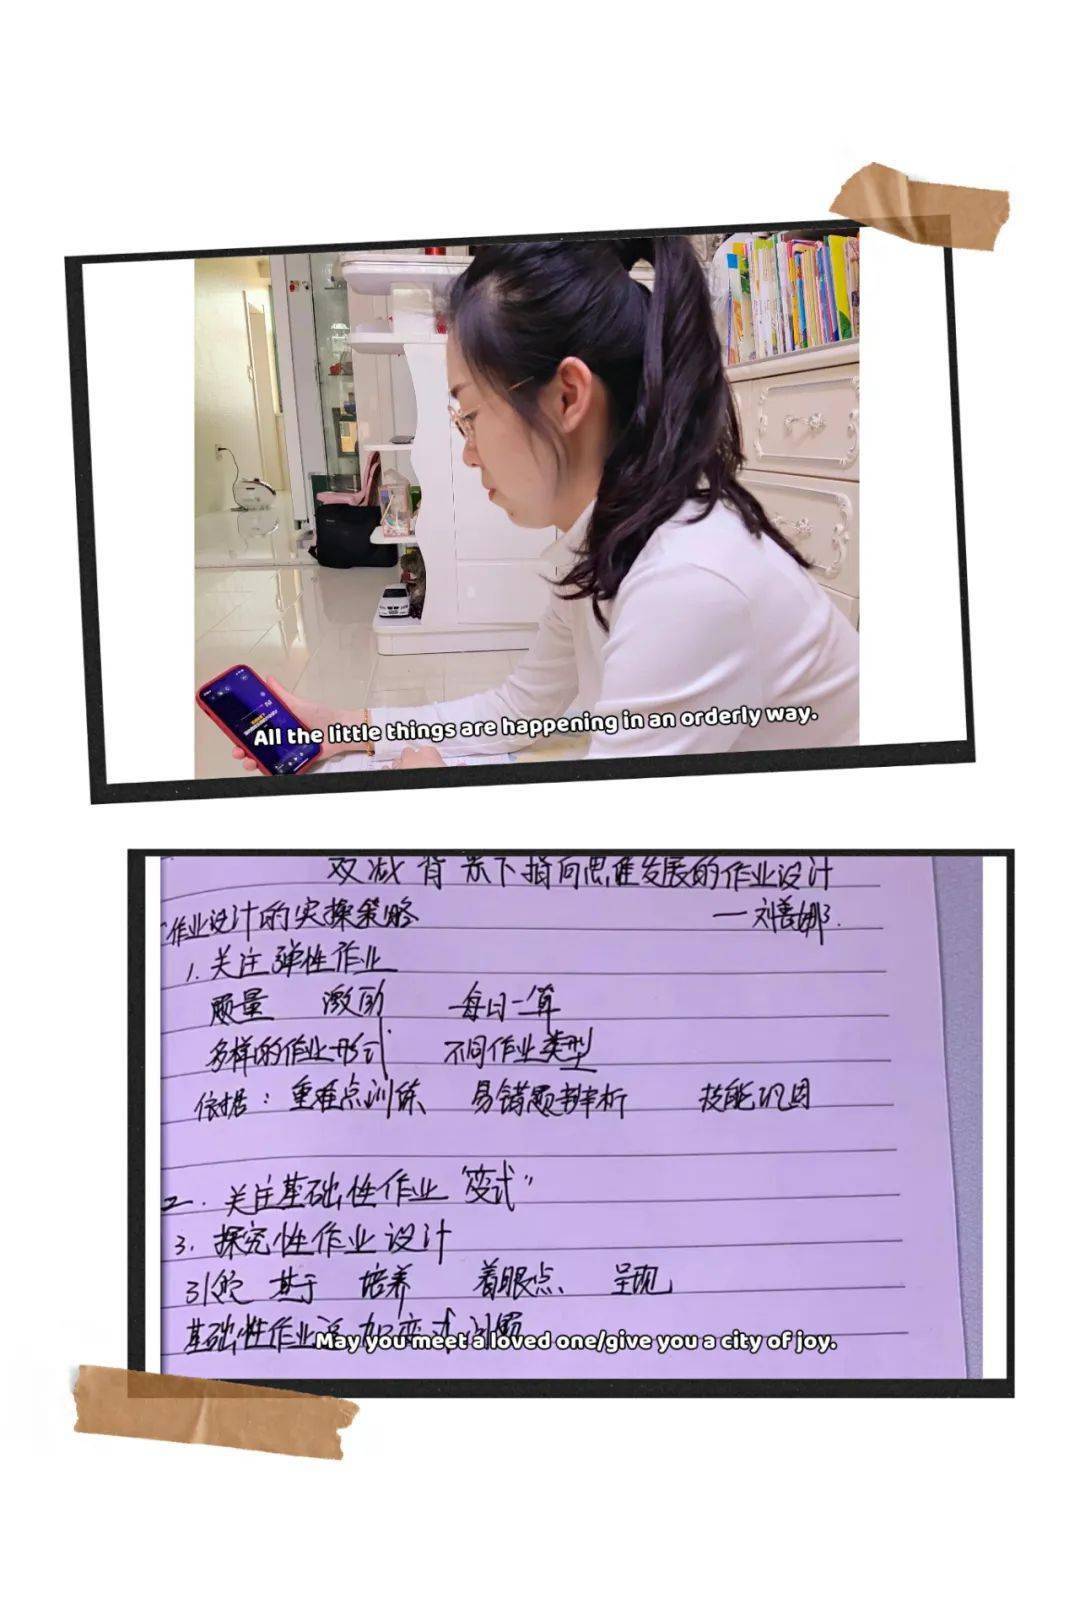 All the little things are happening in an orderly way.
双减背景下指向思维发展的作业设计
作业设计的实操策略 — 刘善娜.
1. 关注弹性作业
质量 激励 每日一算
多样的作业形式 不同作业类型
依据: 重难点训练 易错题辨析 技能巩固
二. 关注基础性作业 "变式"
3. 探究性作业设计
基于 培养 着眼点 呈现
基础性作业 加变式 习题
May you meet a loved one/give you a city of joy.